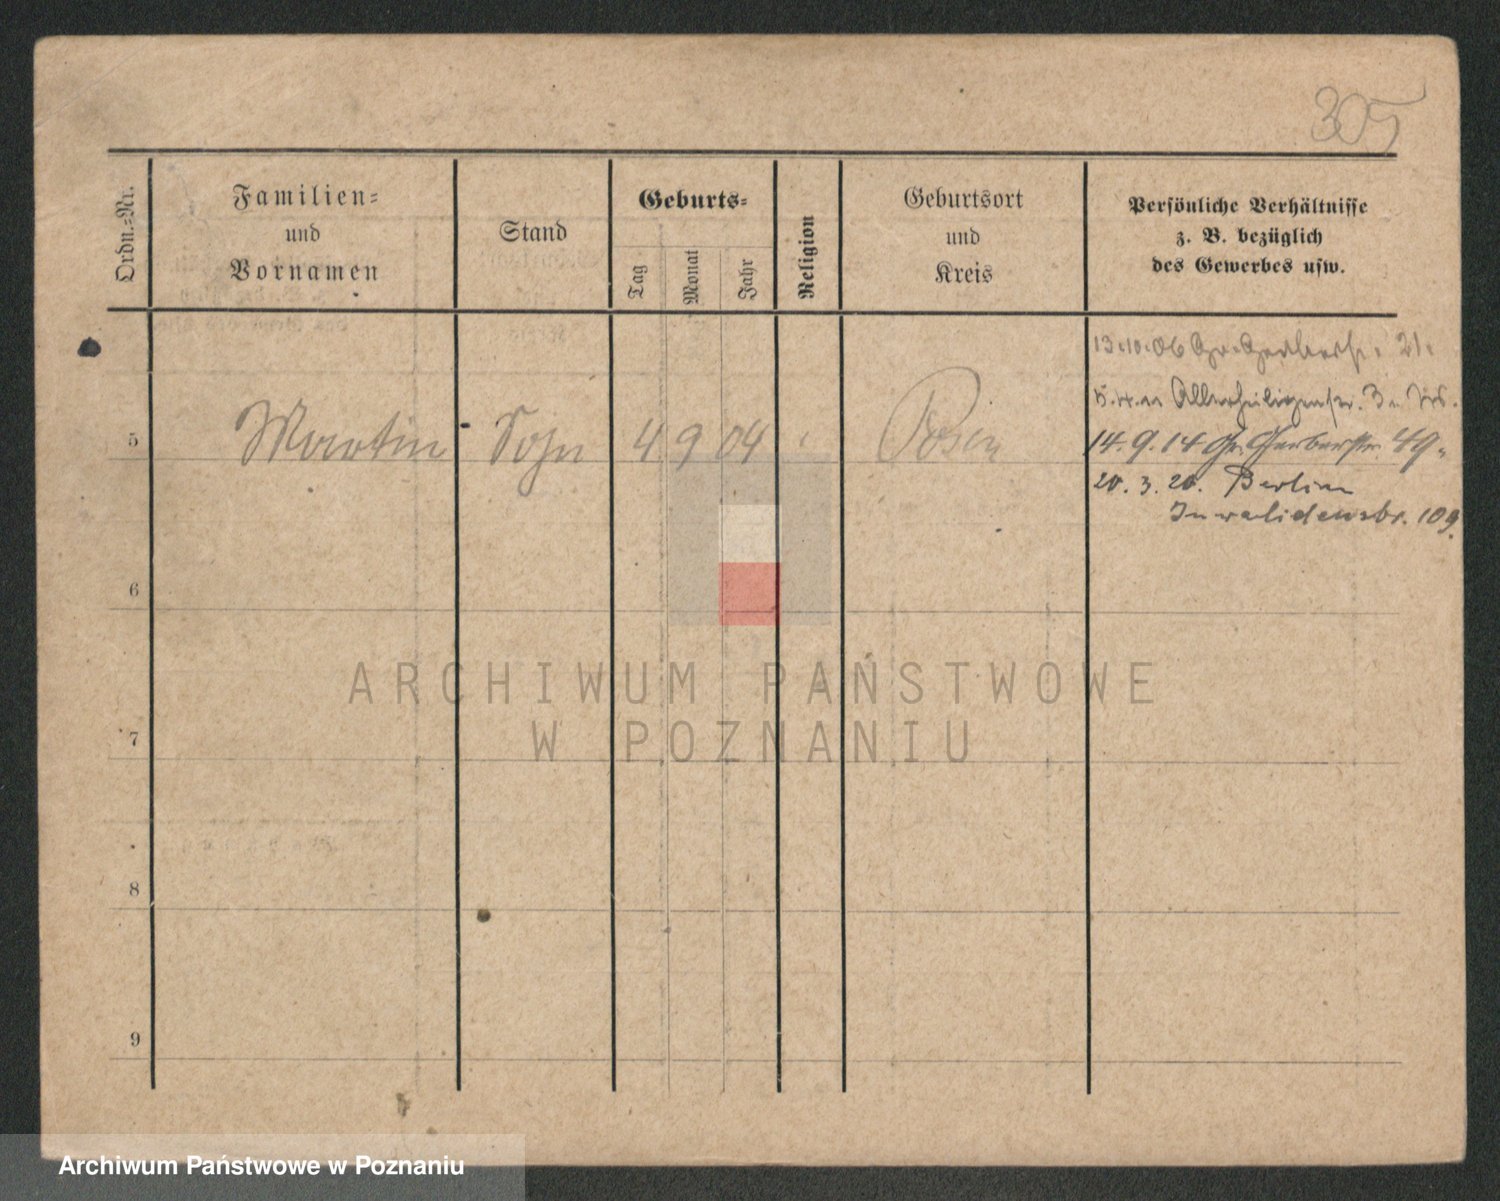 305
Ordn.-Nr.
Familien-
und
Vornamen
Stand
Geburts-
Tag
Monat
Jahr
Religion
Geburtsort
und
Kreis
Persönliche Verhältnisse
z. B. bezüglich
des Gewerbes usw.
13.10.06 Gr. Gerberstr. 21.
Allerheiligenstr. 3
5 Martin Sohn 4 9 04 Posen 14.9.14 Gr. Gerberstr. 49
20.3.20. Berlin
Invalidenstr. 109.
6
7
8
9
ARCHIWUM PAŃSTWOWE
W POZNANIU
Archiwum Państwowe w Poznaniu